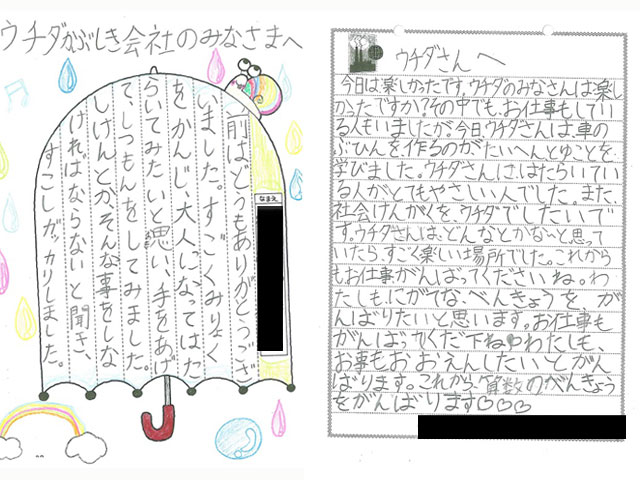 ウチダかぶしき会社のみなさまへ
前はどうもありがとうござ
いました。すごくみりょく
をかんじ、大人になってはた
らいてみたいと思い、手をあげ
て、しつもんをしてみました。
しけんとか、そんな事をしな
ければならないと聞き、
すこしガッカリしました。
なまえ
ウチダさんへ
今日は楽しかったです。ウチダのみなさんは楽し
かったですか?その中でも、お仕事もしてい
る人もいましたが。今日、ウチダさんは、車の
ぶひんを、作るのがたいへんとゆことを
学びました。ウチダさんに、はたらいてい
る人がとてもやさしい人でした。また、
社会けんがくを、ウチダでしたいで
す。ウチダさんは、どんなとかな〜と思って
いたら、すごく楽しい場所でした。これから
もお仕事がんばってくださいね。わ
たしも、にがてな、べんきょうを が
んばりたいと思います。お仕事も
がんばってくだ下ねゆわたしも、
お事もおおえんしたいとがん
ばります。これから、算数のがんきょう
をがんばります♡♡♡